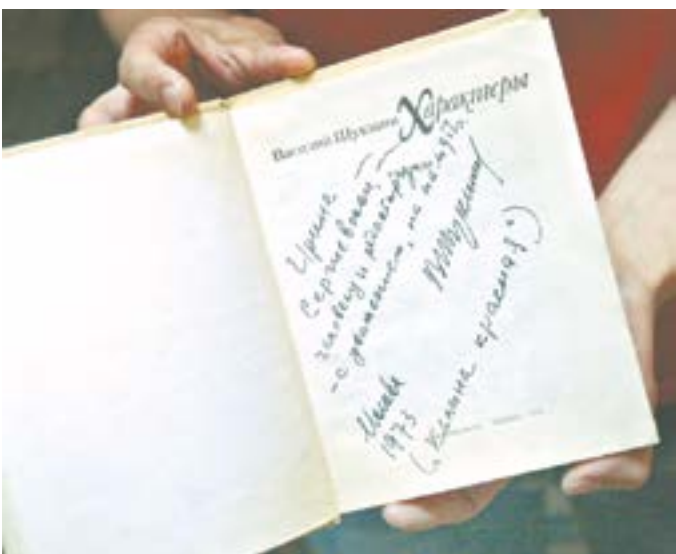 Василий Шукшин Характеры
Ирине
Сергеевне,
человеку и
- с уважением, на память.
ВШукшин
Москва
1973
("Калина красная")